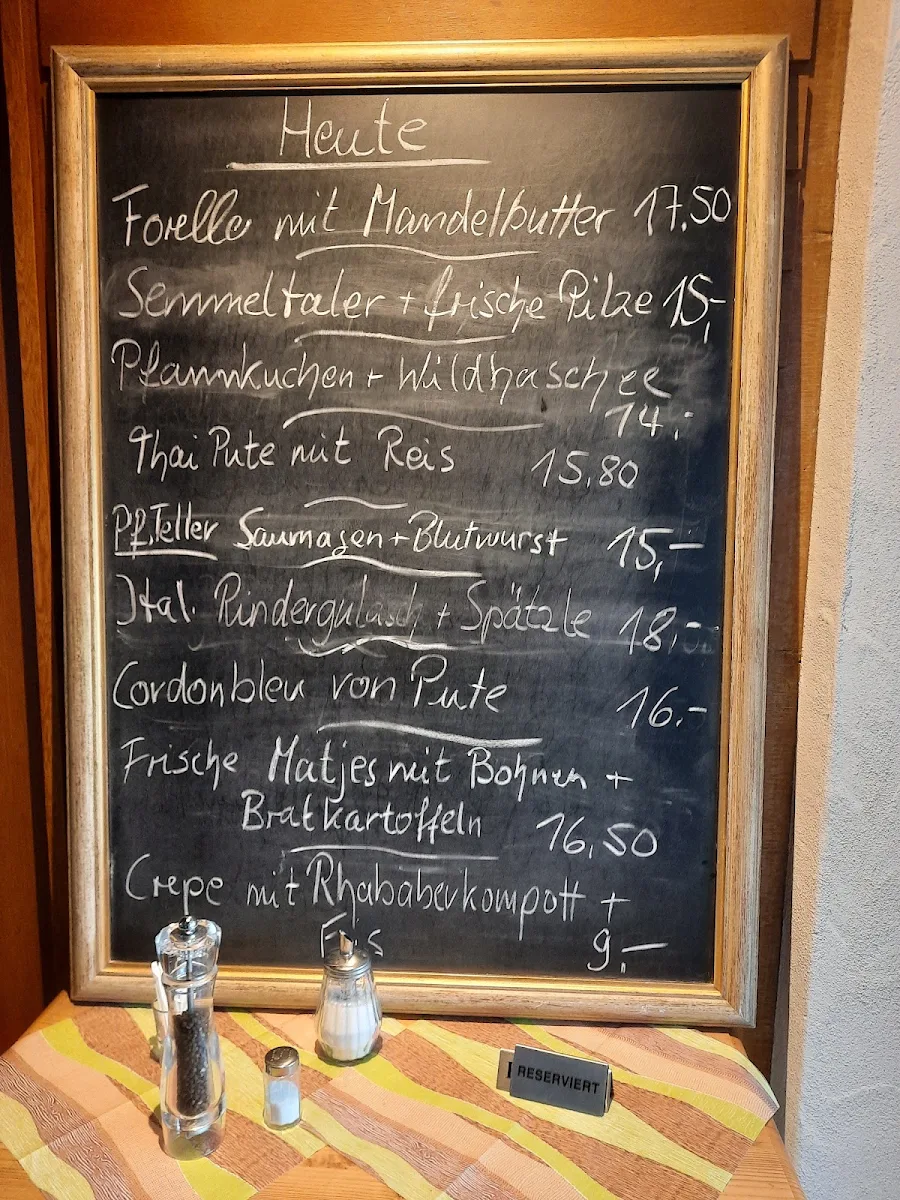 Heute
Forelle mit Mandelbutter 17.50
Semmeltaler + frische Pilze 15,-
Pfannkuchen + Wildhaschee
14,-
Thai Pute mit Reis 15,80
Pf.Teller Saumagen + Blutwurst 15,-
Ital. Rindergulasch + Spätzle 18,-
Cordonbleu von Pute 16.-
Frische Matjes mit Bohnen +
Bratkartoffeln 16,50
Crepe mit Rhababerkompott +
Eis 9,-
RESERVIERT